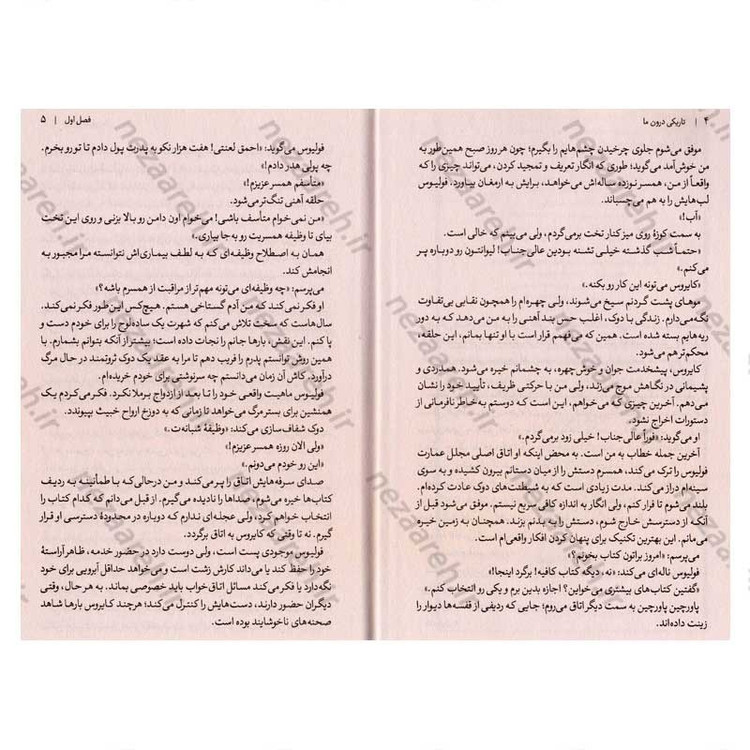 ۴ | تاریکی درون ما
موفق می‌شوم جلوی چرخیدن چشم‌هایم را بگیرم؛ چون هر روز صبح همین‌طور به
من خوش‌آمد می‌گوید؛ طوری که انگار تعریف و تمجید کردن، می‌تواند چیزی را که
واقعاً از من، همسر نوزده ساله‌اش می‌خواهد، برایش به ارمغان بیاورد. فولیوس
لب‌هایش را به هم می‌چسباند.
«آب!»
به سمت کوزهٔ روی میز کنار تخت برمی‌گردم، ولی می‌بینم که خالی است.
«حتماً شب گذشته خیلی تشنه بودین عالی‌جناب! لیوانتون رو دوباره پر
می‌کنم.»
«کایروس می‌تونه این کار رو بکنه.»
موهای پشت گردنم سیخ می‌شوند، ولی چهره‌ام را همچون نقابی بی‌تفاوت
نگه می‌دارم. زندگی با دوک، اغلب حس بند آهنی را به من می‌دهد که به دور
ریه‌هایم بسته شده است. همین که می‌فهمم قرار است با او تنها بمانم، این حلقه،
محکم‌تر هم می‌شود.
کایروس، پیشخدمت جوان و خوش‌چهره، به چشمانم خیره می‌شود. همدردی و
پشیمانی در نگاهش موج می‌زند، ولی من با حرکتی ظریف، تأیید خود را نشان
می‌دهم. آخرین چیزی که می‌خواهم، این است که دوستم به‌خاطر نافرمانی از
دستورات اخراج نشود.
او می‌گوید: «فوراً عالی‌جناب! خیلی زود برمی‌گردم.»
آخرین جمله خطاب به من است. به محض اینکه او اتاق اصلی مجلل عمارت
فولیوس را ترک می‌کند، همسرم دستش را از میان دستانم بیرون کشیده و به سوی
سینه‌ام دراز می‌کند. مدت زیادی است که به شیطنت‌های دوک عادت کرده‌ام.
بلند می‌شوم تا فرار کنم، ولی انگار به اندازه کافی سریع نیستم. موفق می‌شود قبل از
آنکه از دسترسش خارج شوم، دستش را به بدنم بزند. همچنان به زمین خیره
می‌مانم. این بهترین تکنیک برای پنهان کردن افکار واقعی‌ام است.
می‌پرسم: «امروز براتون کتاب بخونم؟»
فولیوس ناله‌ای می‌کند: «نه، دیگه کتاب کافیه! برگرد اینجا!»
«گفتین کتاب‌های بیشتری می‌خواین؟ اجازه بدین برم و یکی رو انتخاب کنم.»
پاورچین پاورچین به سمت دیگر اتاق می‌روم؛ جایی که ردیفی از قفسه‌ها دیوار را
زینت داده‌اند.
فصل اول | ۵
فولیوس می‌گوید: «احمق لعنتی! هفت هزار نکو به پدرت پول دادم تا تو رو بخرم.
چه پولی هدر دادم!»
«متأسفم همسر عزیزم!»
حلقه آهنی تنگ‌تر می‌شود.
«من نمی‌خوام متأسف باشی! می‌خوام اون دامن رو بالا بزنی و روی این تخت
بیای تا وظیفه همسریت رو به جا بیاری.»
همان به اصطلاح وظیفه‌ای که به لطف بیماری‌اش نتوانسته مرا مجبور به
انجامش کند.
می‌پرسم: «چه وظیفه‌ای می‌تونه مهم‌تر از مراقبت از همسرم باشه؟»
او فکر نمی‌کند که من آدم گستاخی هستم. هیچ‌کس این طور فکر نمی‌کند.
سال‌هاست که سخت تلاش می‌کنم که شهرت یک ساده‌لوح را برای خودم دست و
پا کنم. این نقش، بارها جانم را نجات داده است؛ بیشتر از آنکه بتوانم بشمارم. با
همین روش توانستم پدرم را فریب دهم تا مرا به عقد یک دوک ثروتمند در حال مرگ
درآورد. کاش آن زمان می‌دانستم چه سرنوشتی برای خودم خریده‌ام.
فولیوس ماهیت واقعی خود را تا بعد از ازدواج برملا نکرد. فکر می‌کردم یک
همنشین برای بستر مرگ می‌خواهد تا زمانی که به دوزخ ارواح خبیث بپیوندد.
دوک شفاف‌سازی می‌کند: «وظیفهٔ شبانه‌ت.»
«ولی الان روزه همسر عزیزم!»
«این رو خودم می‌دونم.»
صدای سرفه‌هایش اتاق را پر می‌کند و من درحالی‌که با طمأنینه به ردیف
کتاب‌ها خیره می‌شوم، صداها را نادیده می‌گیرم. از قبل می‌دانم که کدام کتاب را
انتخاب خواهم کرد، ولی عجله‌ای ندارم که دوباره در محدودهٔ دسترسی او قرار
گیرم. نه تا وقتی که کایروس به اتاق برگردد.
فولیوس موجودی پست است، ولی دوست دارد در حضور خدمه، ظاهر آراستهٔ
خود را حفظ کند یا می‌داند کارش زشت است و می‌خواهد حداقل آبرویی برای خود
نگه دارد یا فکر می‌کند مسائل اتاق خواب باید خصوصی بماند. به هر حال، وقتی
دیگران حضور دارند، دست‌هایش را کنترل می‌کند؛ هرچند کایروس بارها شاهد
صحنه‌های ناخوشایند بوده است.
nezaareh.ir